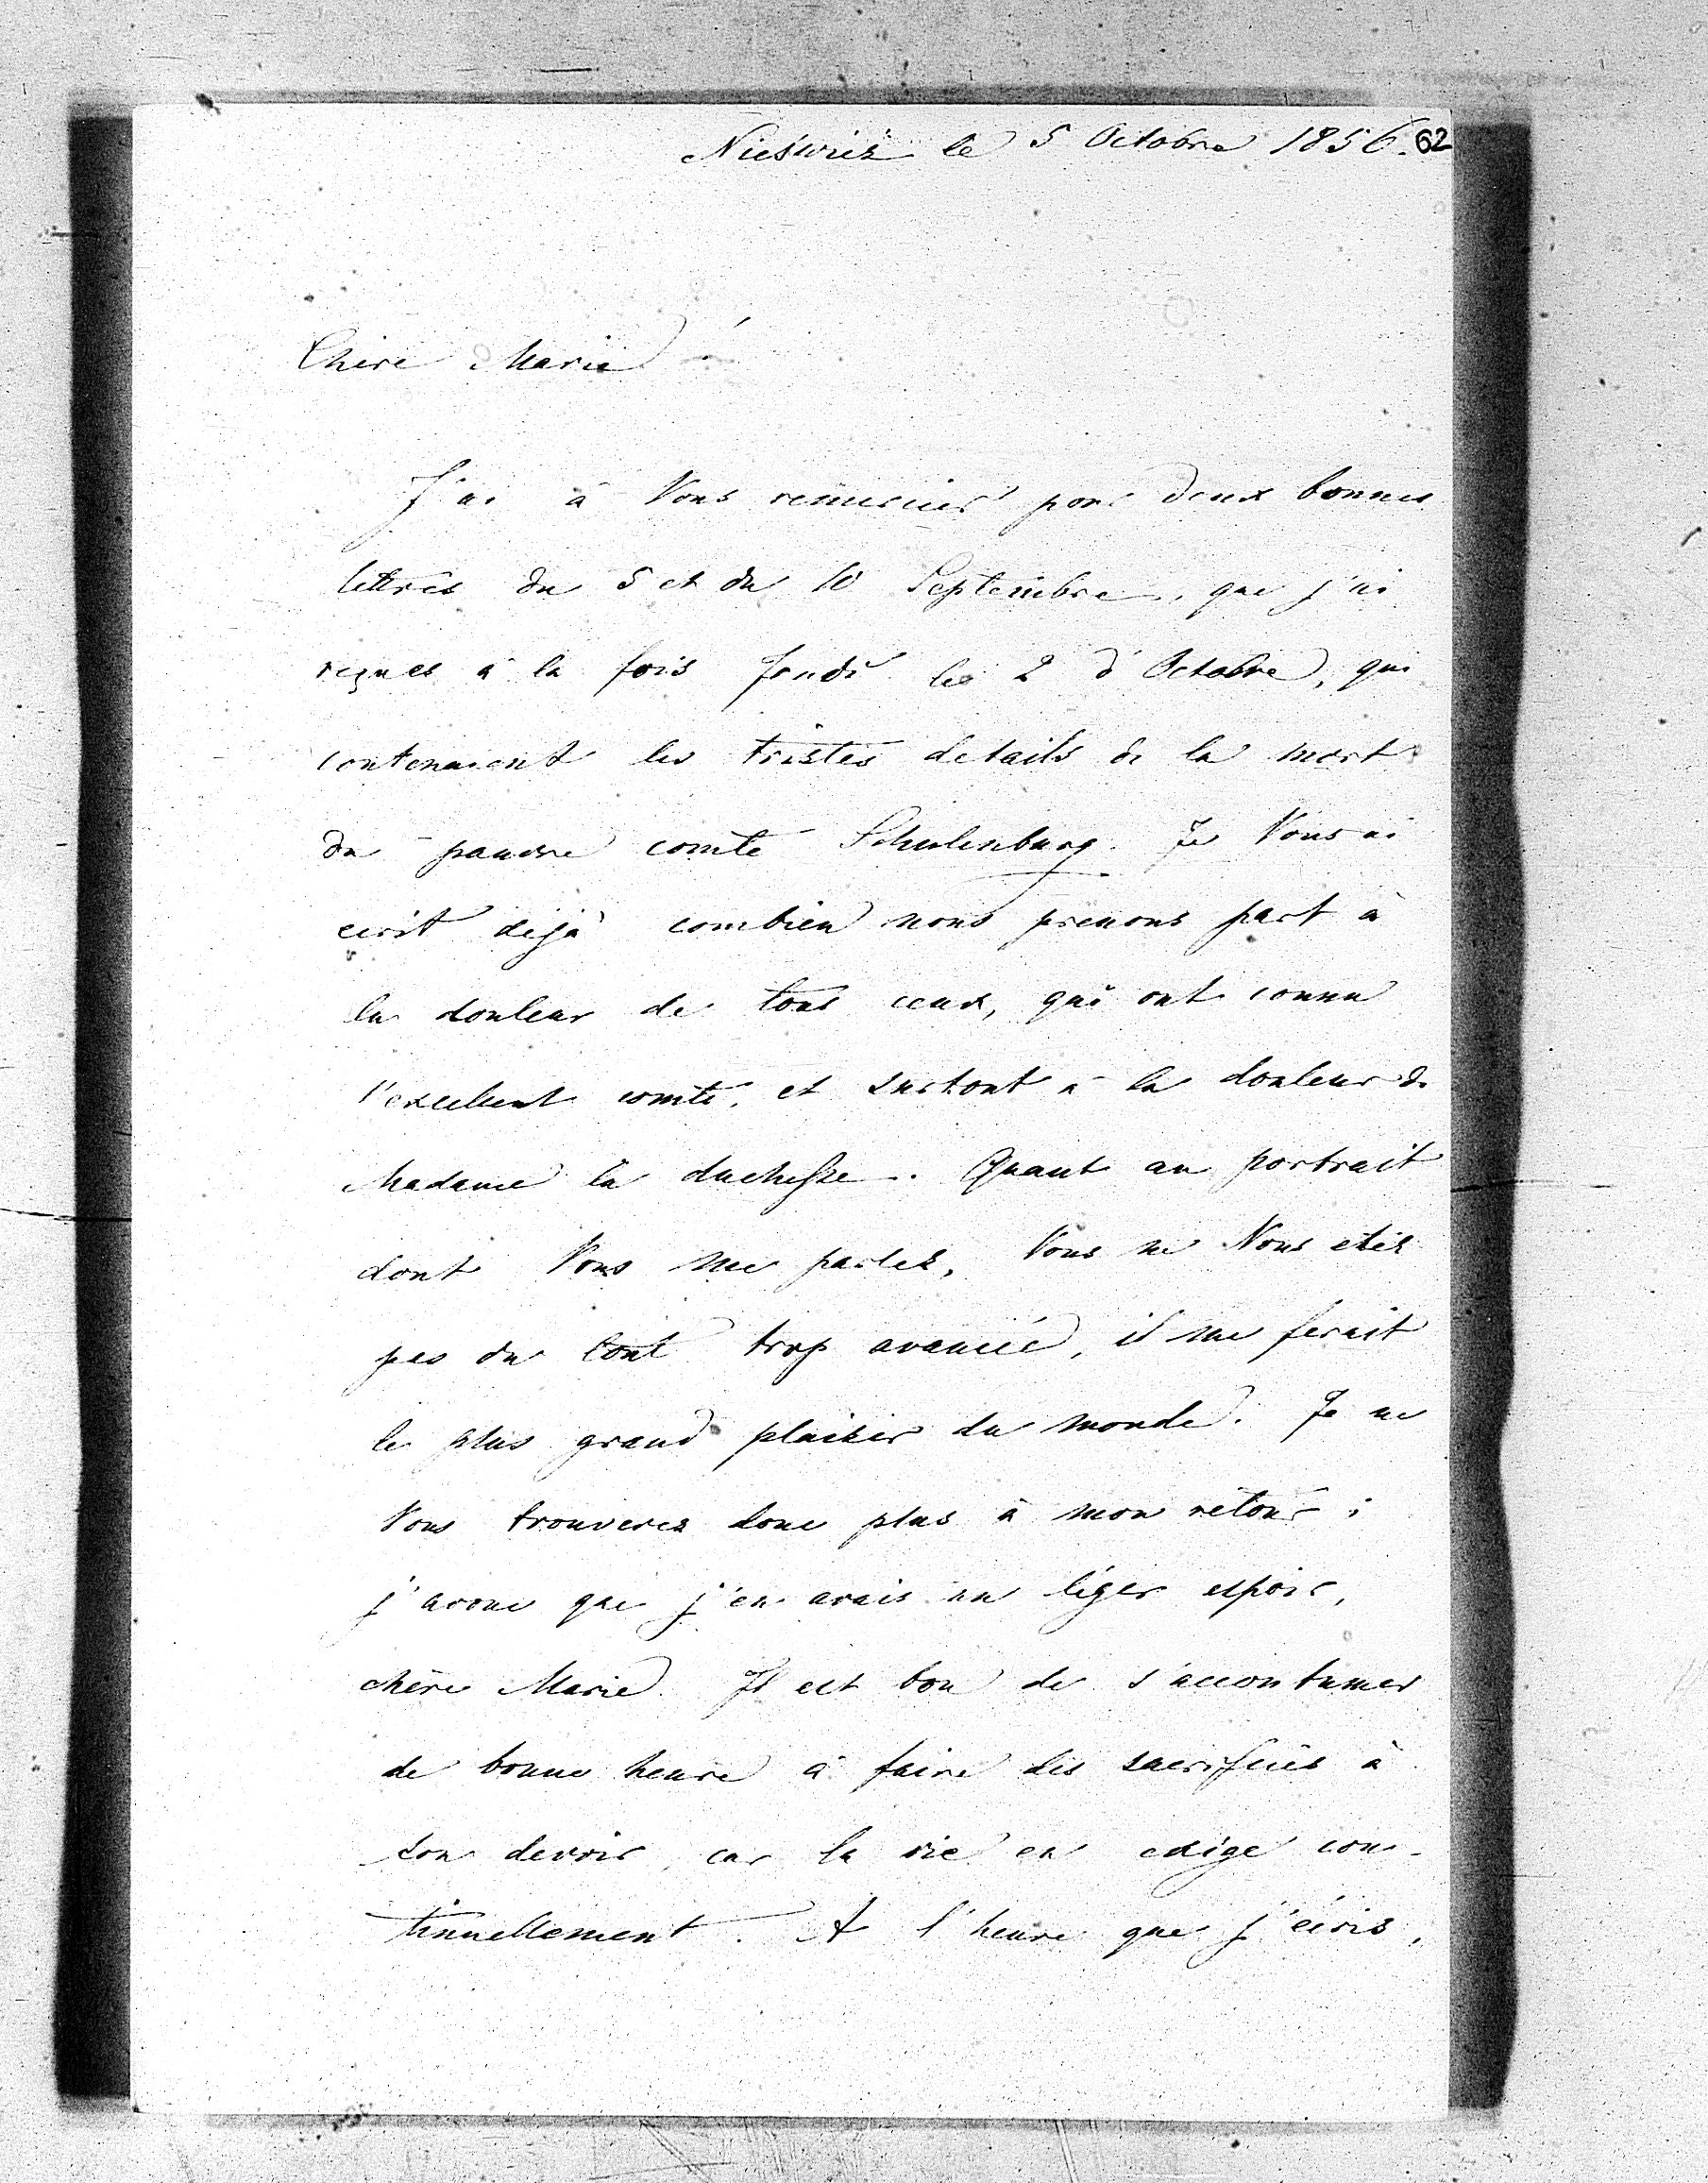 Nieswiez le 5 Octobre 1856. 62
Chère Marie !
J'ai à Vous remercier pour deux bonnes
lettres du 5 et du 10 Septembre, que j'ai
reçues à la fois Jeudi le 2 d'Octobre, qui
contenaient les tristes details de la mort
du pauvre comte Schulenburg. Je Vous ai
ecrit dejà combien nous prenons part à
la douleur de tous ceux, qui ont connu
l'excellent comte, et surtout à la douleur de
Madame la duchesse. Quant au portrait
dont Vous me parlez, Vous ne Vous etes
pas du tout trop avancée, il me ferait
le plus grand plaisir du monde. Je ne
Vous trouverez donc plus à mon retour;
j'avoue que j'en avais un léger espoir,
chère Marie. Il est bon de s'accoutumer
de bonne heure à faire des sacrifices à
son devoir, car la vie en exige con-
tinuellement. A l'heure que j'écris,